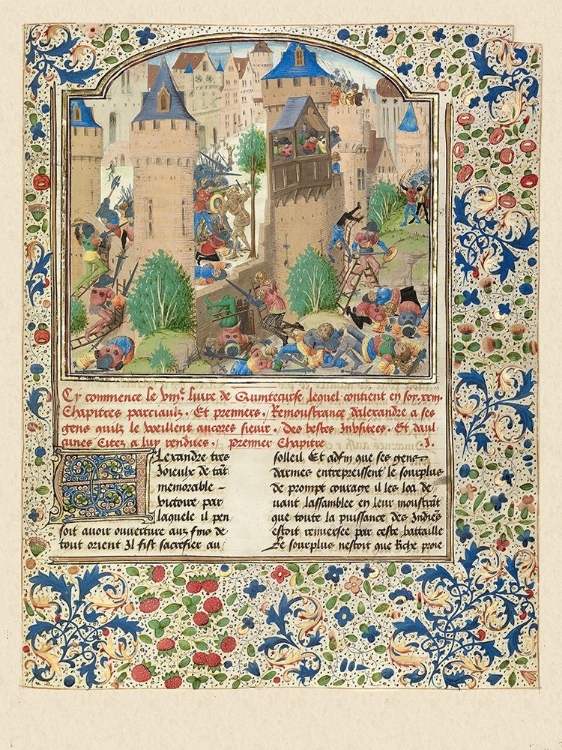 Cy commence le viiie livre de Quintecurse lequel contient en soy xxiii
chapitres parciaulx. Et premiers. Remoustrance dalexandre a ses
gens quilz le veeillent ancores sieuir. Des bestes Inusitees. Et daul
cunes citez a luy rendues. premier chapitre .I.
Alexandre tres
Joieulx de tāt
memorable
victoire par
laquele il pen
soit auoir ouverture aux fins de
tout orient Il fist sacrifier au
solleil Et adfin que ses gens
darmes entrepreissent le sourplus
de prompt courage il les loa de
uant lassamblee en leur moustrāt
que toute la puissance des Indies
estoit renversee par ceste bataille
Le sourplus nestoit que Riche proie